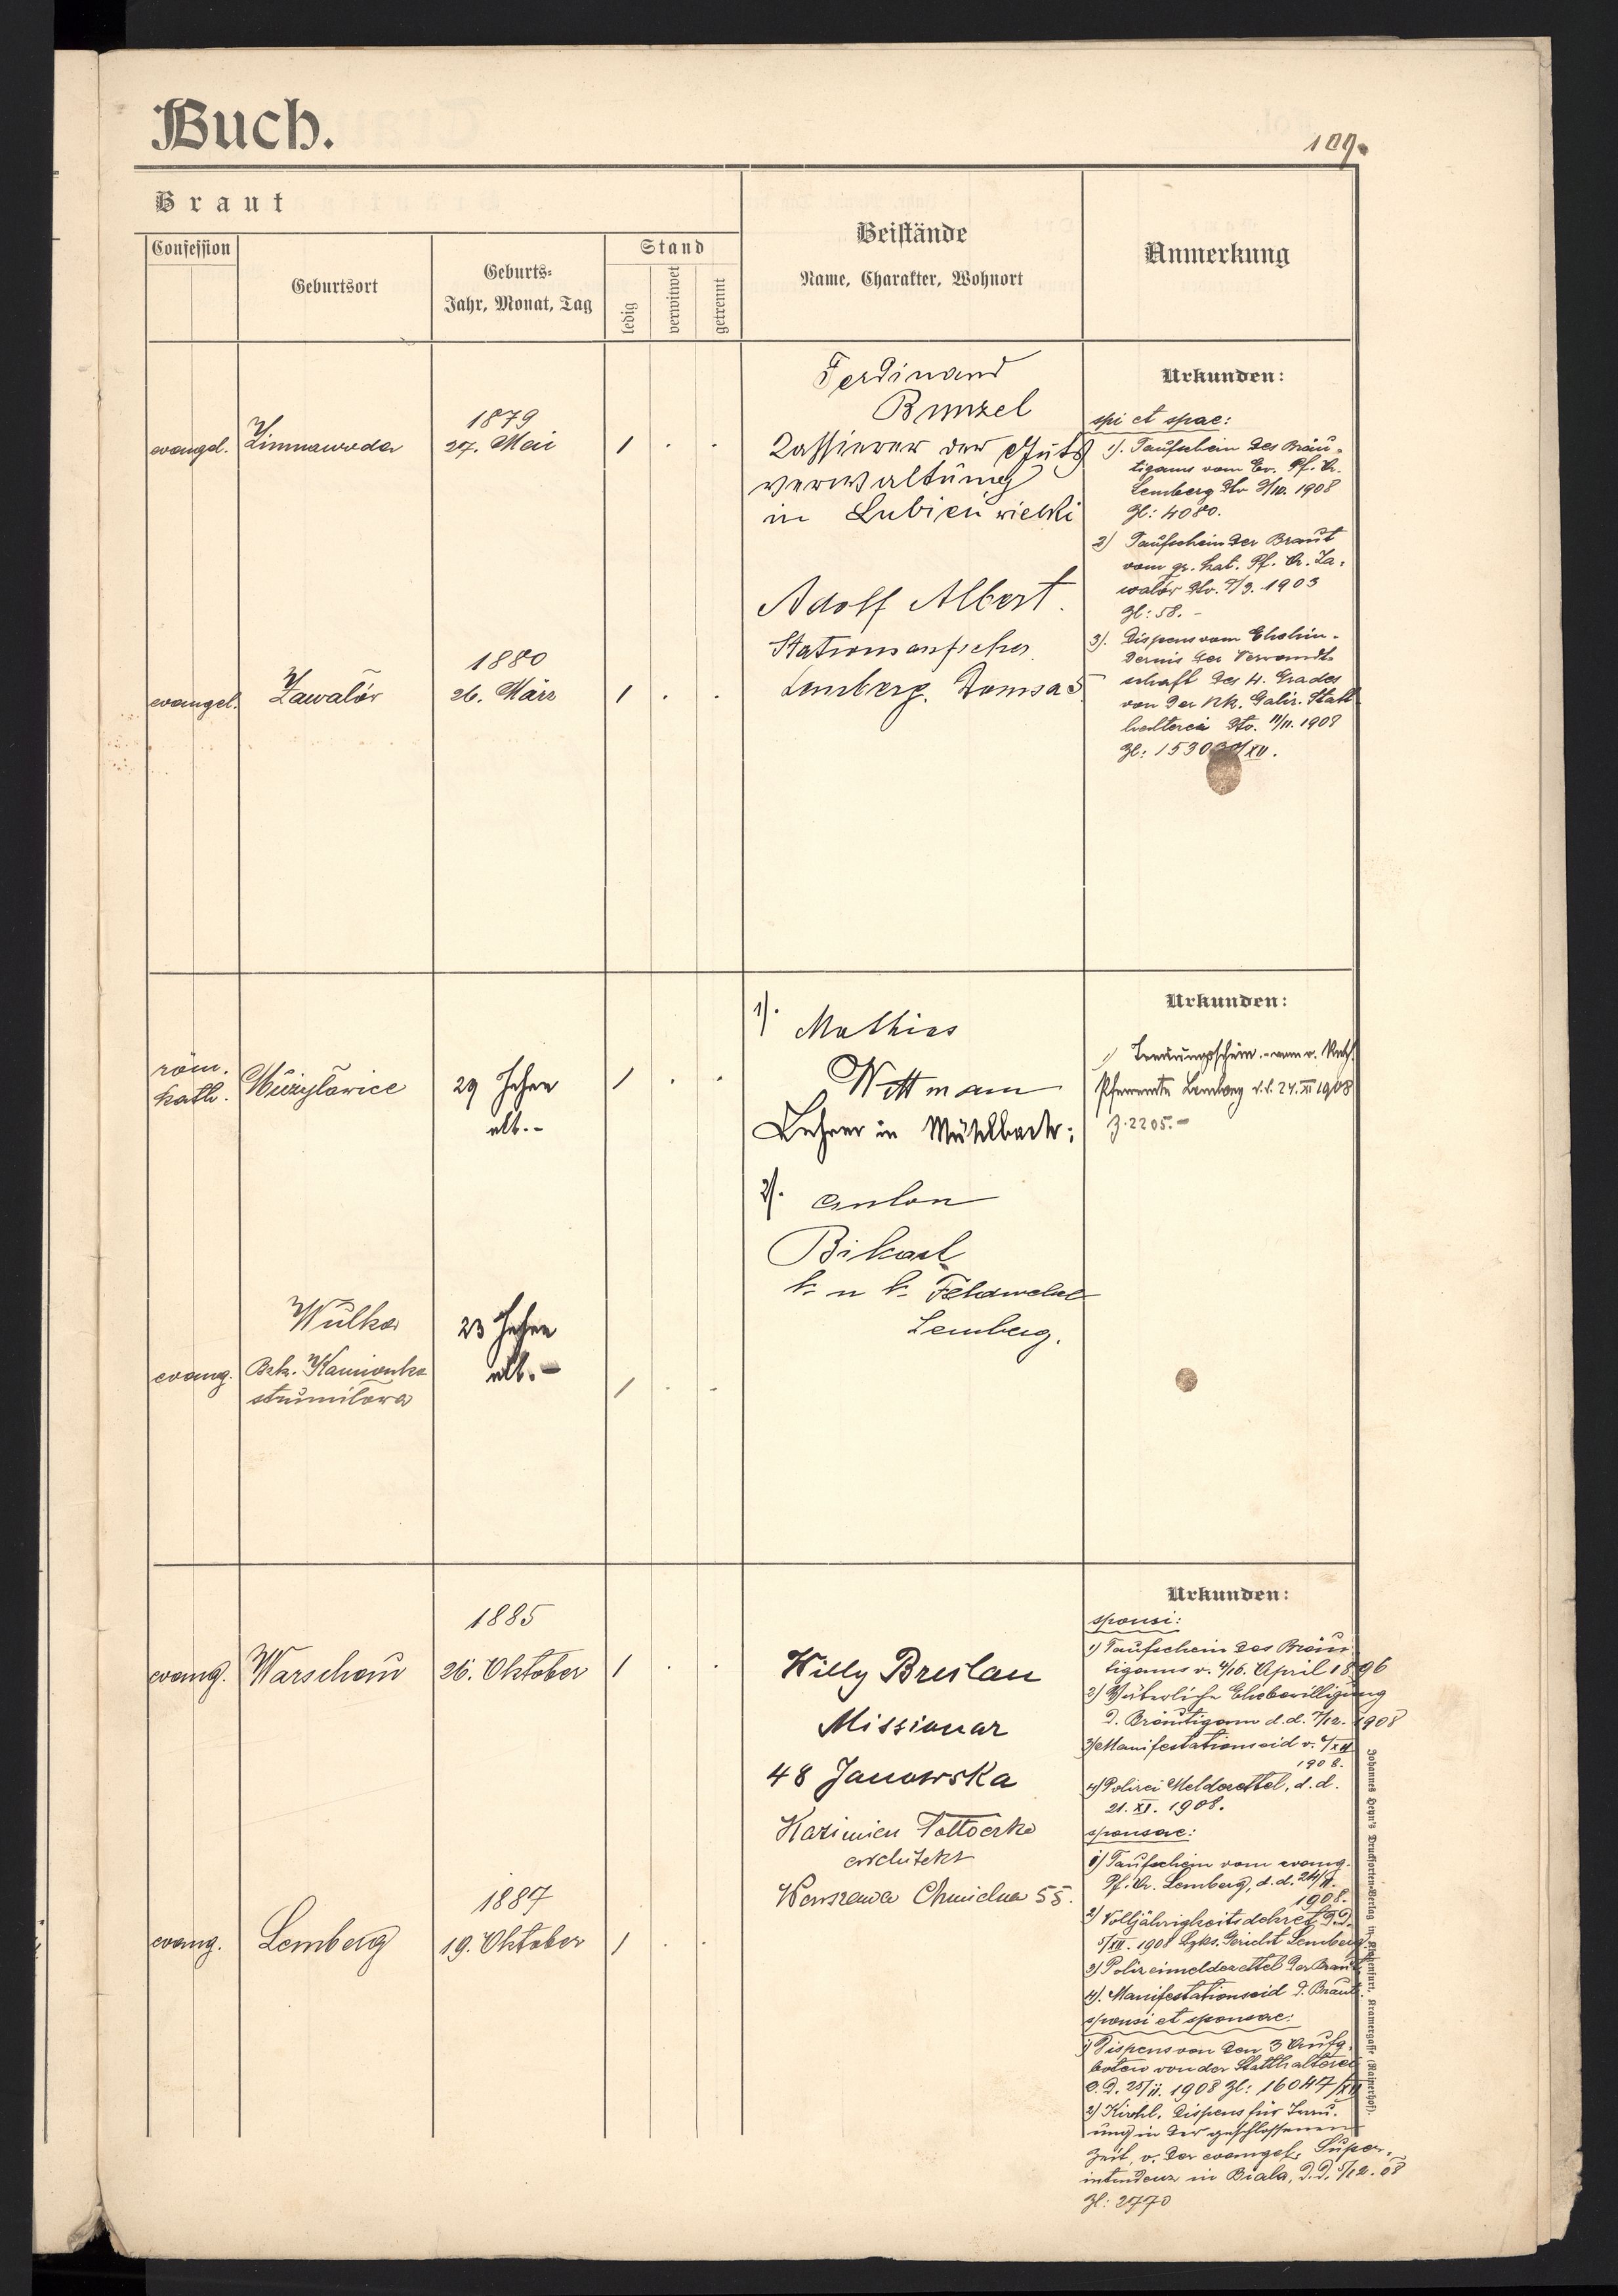 Buch.
109.
Braut
Confession
Geburtsort
Geburts-
Jahr, Monat, Tag
Stand
ledig
verwitwet
getrennt
Beistände
Name, Charakter, Wohnort
Anmerkung
evangel.
Zimnawoda
1879
27. Mai
1 . .
Ferdinand
Bunzel
Kassierer der Guts
verwaltung
in Lubień wielki
Adolf Albert.
Stationsaufseher
Lemberg.
evangel.
Zawałów
1880
26. März
1 . .
Urkunden:
spi et spae:
1). Taufschein des Bräu-
tigams vom Ev. Pf. A.
Lemberg
1908
Zl: 4080.
2) Taufschein der Braut
vom gr. kat. Pf. A. Za-
wałów
1903
Zl: 58. -
3). Dispens vom Ehehin-
dernis der Verwandt-
schaft des 4. Grades
von der kk. Galiz. Statt
halterei dto. 11/11. 1908
Zl:
röm.
kath.
Mużyłowice
29 Jahre
alt.-
1 . .
1).
Mathias
Wittmann
Lehrer in Mühlbach;
2). Anton
Bikart
k. u k. Feldwebel
Lemberg.
evang.
Wulka
Bzk. Kamionka
strumiłowa
23 Jahre
alt.-
1 . .
Urkunden:
1) Trauungsschein
Pfarramte Lemberg d.d. 24. XI 1908
Z. 2205.-
evang.
Warschau
1885
26. Oktober
1 . .
Willy Breslau
Missionar
48 Janowska
Kazimierz
architekt
Warszawa Chmielna 55.
evang.
Lemberg
1887
19. Oktober
1 . .
Urkunden:
sponsi:
1) Taufschein des Bräu
tigams v. 4/16. April 1896
2) Väterliche Ehebewilligung
d. Bräutigam d.d. 7/12. 1908
3) Manifestationseid v.
1908.
4) Polizei Meldezettel, d.d.
21. XI. 1908.
sponsae:
1) Taufschein vom evang.
Pf. A. Lemberg, d.d. 24/11.
1908.
2) Volljährigkeitsdekret d.d.
5/XII. 1908 Bzks. Gericht Lemberg
3) Polizeimeldezettel der Braut
4). Manifestationseid d. Braut.
sponsi et sponsae:
1) Dispens von den 3 Aufg.
boten von der Statthalterei
d.d. 25/11. 1908 Zl: 16047/XII
2) Kirchl. Dispens für Trau-
ung in der geschlossenen
Zeit, v. der evangel. Super-
intendenz in Biala, d.d. 5/12. 08
Zl: 2770
Johannes Heyn's Drucksorten-Verlag in Klagenfurt, Kramergasse (Rainerhof).